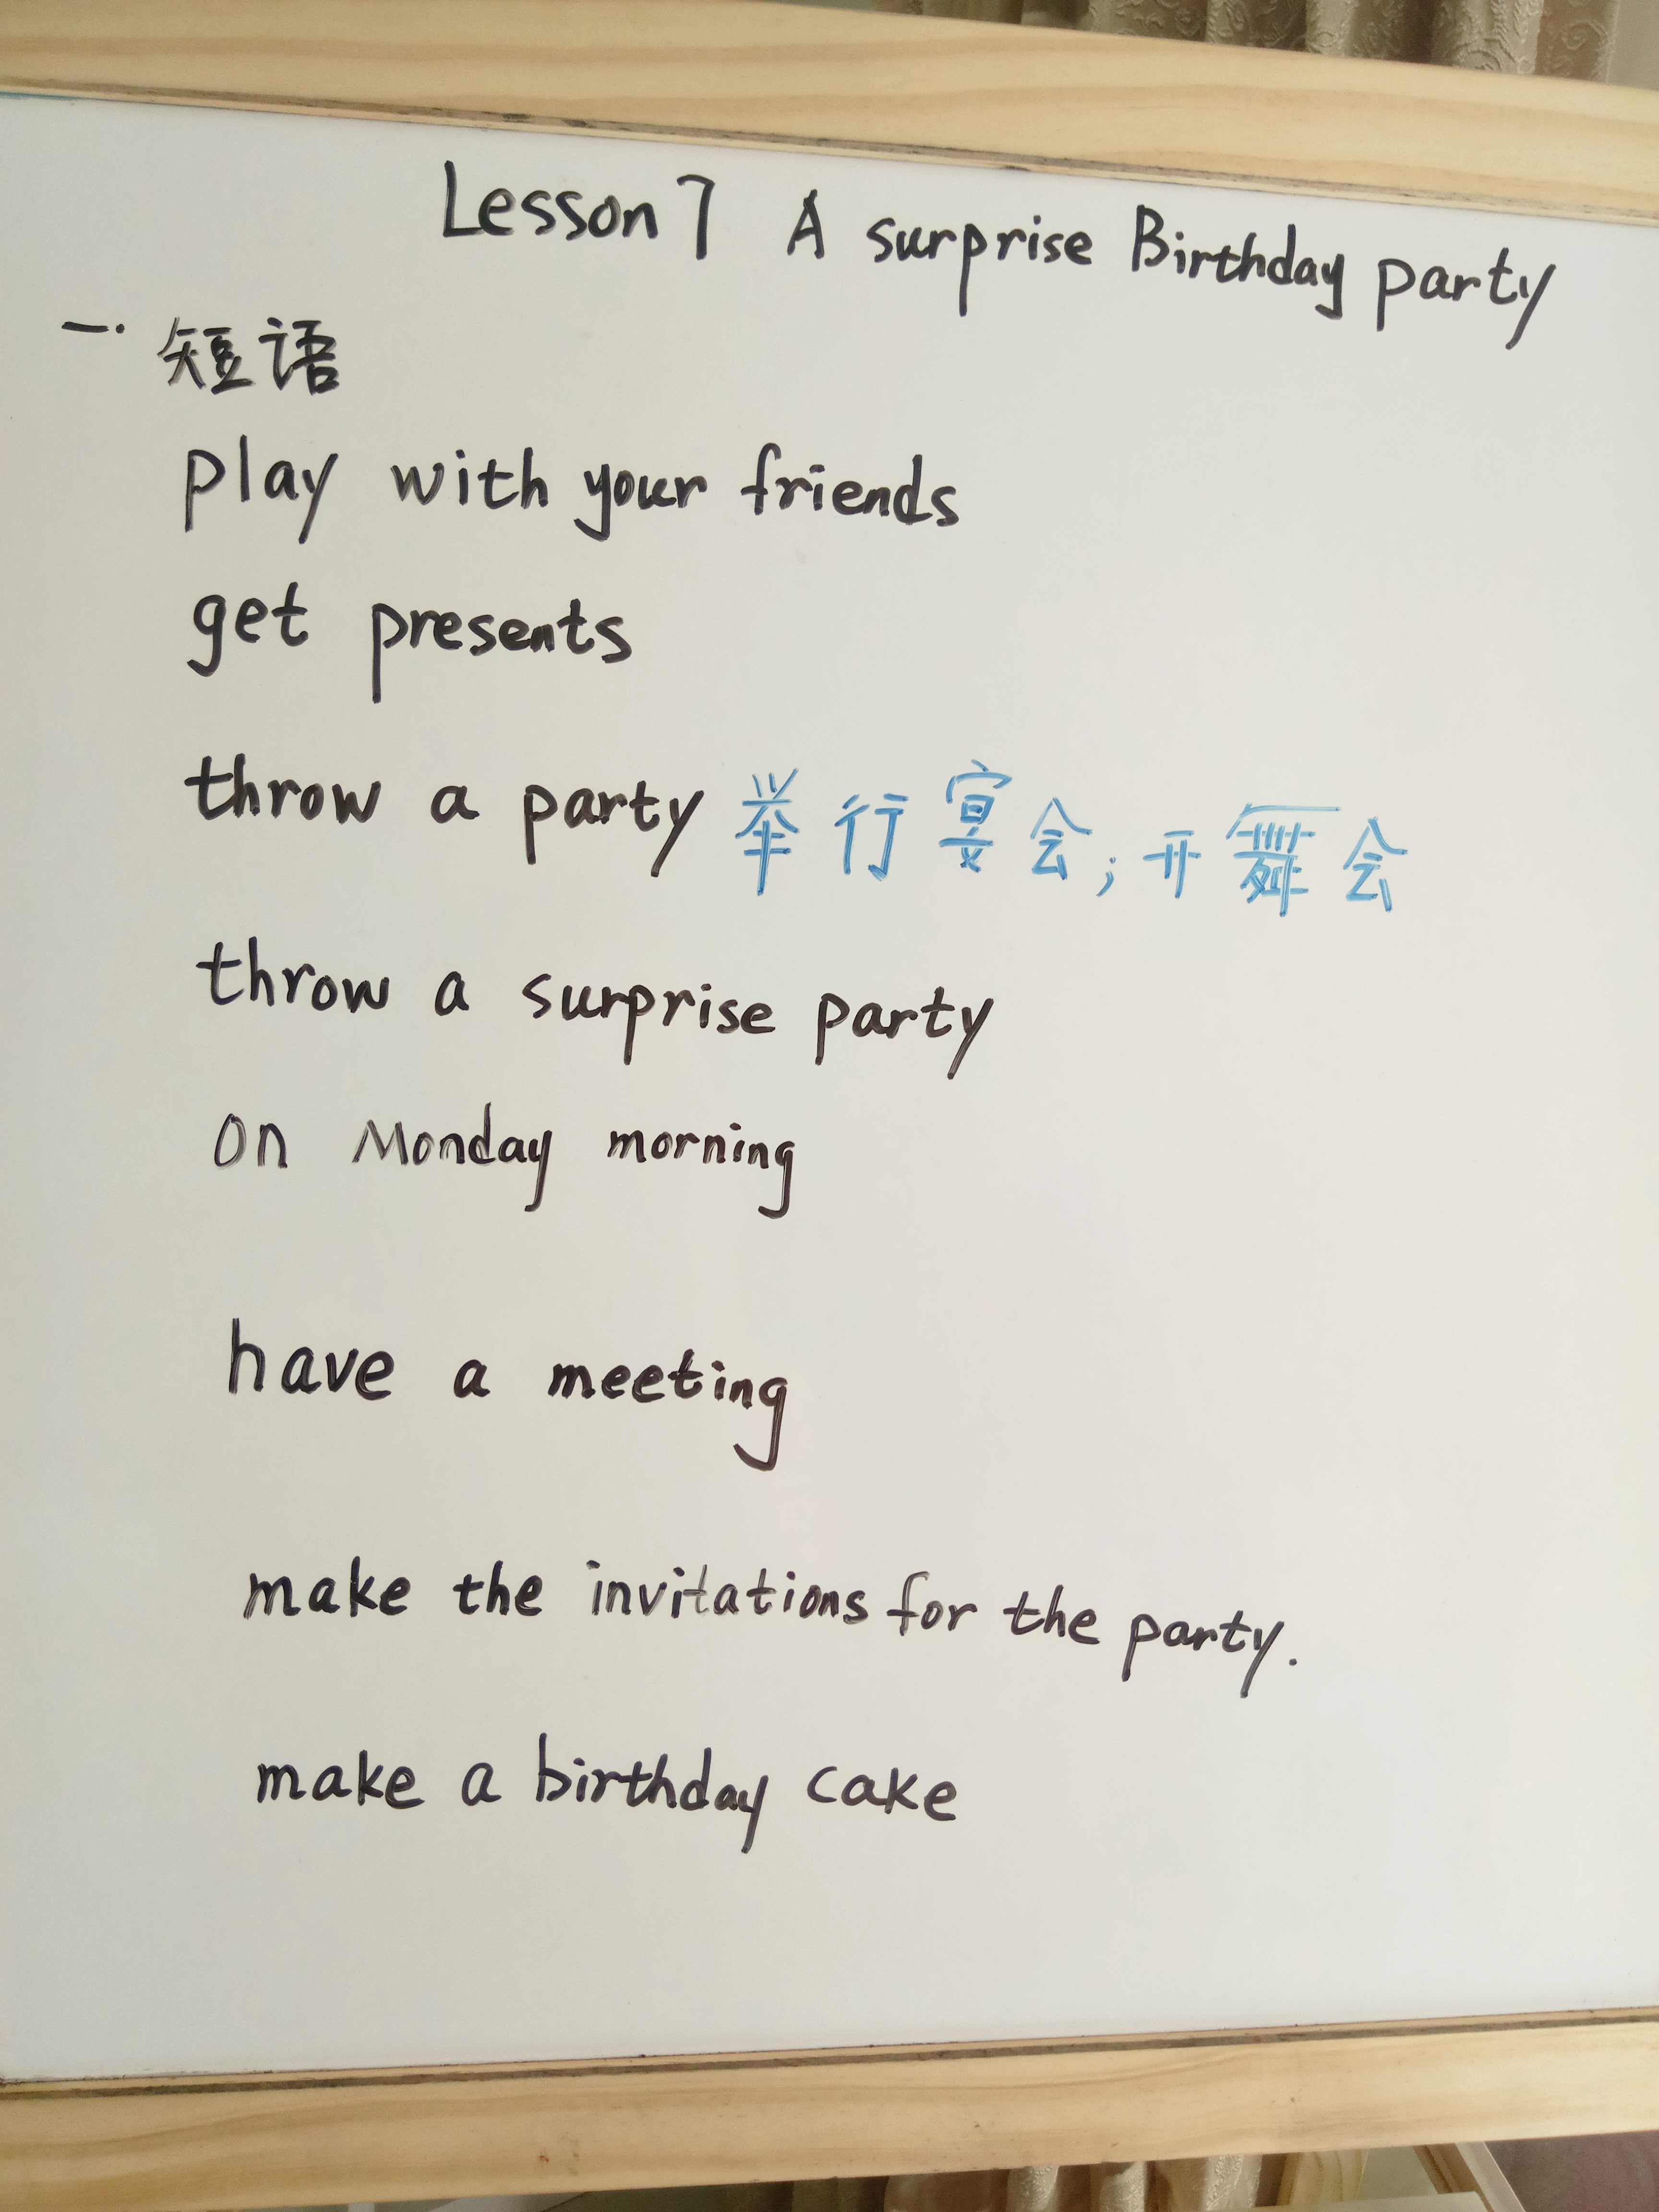 Lesson 7 A surprise Birthday party
一. 短语
play with your friends
get presents
throw a party 举行宴会; 开舞会
throw a surprise party
on Monday morning
have a meeting
make the invitations for the party.
make a birthday cake